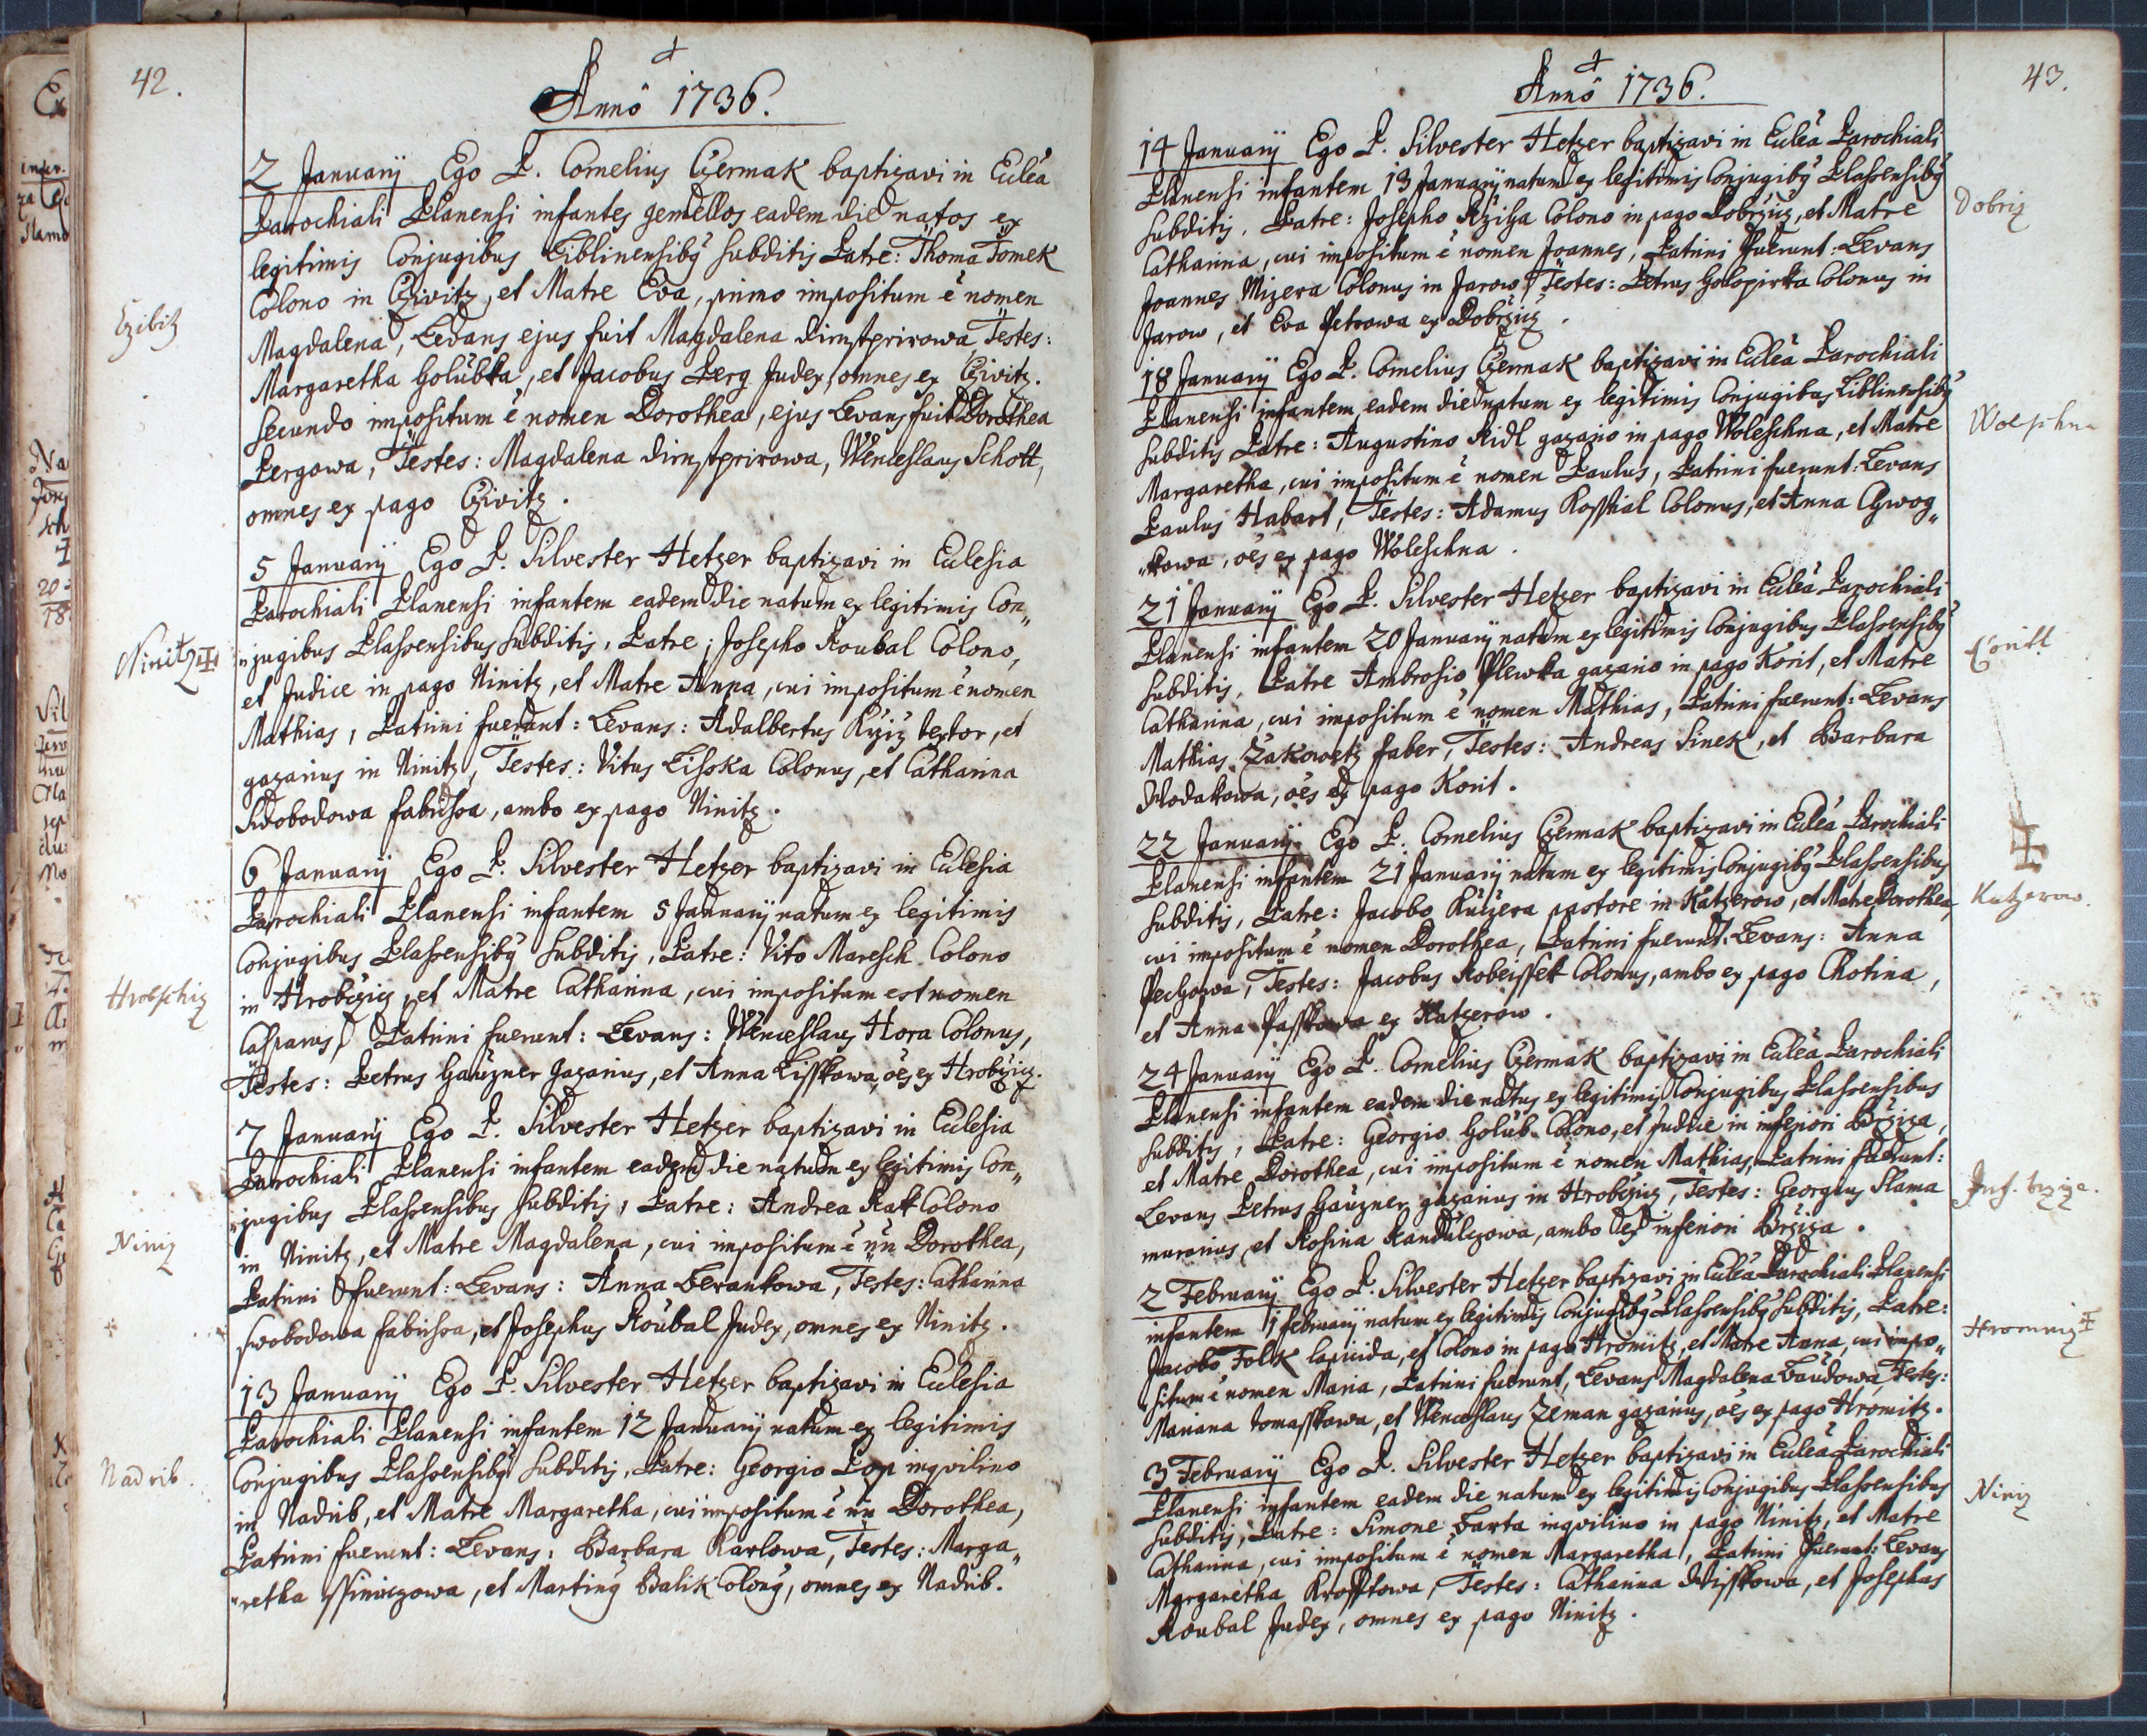 42.
Anno 1736.
2 Januarij Ego P. Cornelius Czermak baptizavi in Eccleâ
Parochiali Planensi infantes gemellos eadem die natos ex
legitimis Conjugibus Liblinensibq subditis Patre: Thoma Tomek
Colono in Czivitz, et Matre Eva, primo impositum ē nomen
Czibitz
Magdalena, Levans ejus fuit Magdalena Testes:
Margaretha Holubka, et Jacobus Perg Judex, omnes ex Czivitz.
Secundo impositum ē nomen Dorothea, ejus Levans fuit Dorothea
Pergowa, Testes: Magdalena Wenceslaus Schott,
omnes ex pago Czivitz.
5 Januarij Ego P. Silvester Hetzer baptizavi in Eclesia
Parochiali Planensi infantem eadem die natum ex legitimis Con„
„jugibus Plassensibus subditis, Patre: Josepho Koubal Colono,
Ninitz
et Judice in pago Ninitz, et Matre Anna, cui impositum ē nomen
Mathias, Patrini fuerunt: Levans: Adalbertus Krziz textor, et
gazarius in Ninitz, Testes: Vitus Lisska Colonus, et Catharina
Swobodowa fabrissa, ambo ex pago Ninitz.
6 Januarij Ego P. Silvester Hetzer baptizavi in Eclesia
Parochiali Planensi infantem 5 Januarij natum ex legitimis
Conjugibus Plassensibq subditis, Patre: Vito Maresch Colono
Hrobschiz
in Hrobczicz, et Matre Catharina, cui impositum est nomen
Casparus, Patrini fuerunt: Levans: Wenceslaus Hora Colonus,
Testes: Petrus Hauzner gazarius, et Anna Lisskowa, oēs ex Hrobczicz.
7 Januarij Ego P. Silvester Hetzer baptizavi in Eclesia
Parochiali Planensi infantem eadem die natum ex legitimis Con„
„jugibus Plassensibus subditis, Patre: Andrea Kak Colono
Niniz
in Ninitz, et Matre Magdalena, cui impositum ē nn Dorothea,
Patrini fuerunt: Levans: Anna Berankowa, Testes: Catharina
Swobodowa fabrissa, et Josephus Koubal Judex, omnes ex Ninitz.
13 Januarij Ego P. Silvester Hetzer baptizavi in Eclesia
Parochiali Planensi infantem 12 Januarij natum ex legitimis
Nadrib.
Conjugibus Plassensibq subditis, Patre: Georgio Lop inqvilino
in Nadrib, et Matre Margaretha, cui impositum ē nn Dorothea,
Patrini fuerunt: Levans: Barbara Karlowa, Testes: Marga„
„retha et Martinq Balik Colonq, omnes ex Nadrib.
43.
Anno 1736.
14 Januarij Ego P. Silvester Hetzer baptizavi in Eccleâ Parochiali
Planensi infantem 13 Januarij natum ex legitimis Conjugibq Plassensibq
Dobriz
subditis, Patre: Josepho Rziha Colono in pago Dobrzicz, et Matre
Catharina, cui impositum ē nomen Joannes, Patrini fuerunt: Levans
Joannes Mizera Colonus in Jarow, Testes: Petrus Holopirka Colonus in
Jarow, et Eva Petrowa ex Dobrzicz.
18 Januarij Ego P. Cornelius Czermak baptizavi in Eccleâ Parochiali
Planensi infantem eadem die natum ex legitimis Conjugibus Liblinensibq
Woleschna
subditis Patre: Augustino Ridl gazario in pago Woleschna, et Matre
Margaretha, cui impositum ē nomen Paulus, Patrini fuerunt: Levans
Paulus Habart, Testes: Adamus Kosstial Colonus, et Anna
„kowa, oēs ex pago Woleschna.
21 Januarij Ego P. Silvester Hetzer baptizavi in Eccleâ Parochiali
Planensi infantem 20 Januarij natum ex legitimis Conjugibus Plassensibq
subditis, Patre Ambrosio Plewka gazario in pago Korit, et Matre
Catharina, cui impositum ē nomen Mathias, Patrini fuerunt: Levans
Mathias Zakowetz faber, Testes: Andreas Sinek, et Barbara
Wodakowa, oēs ex pago Korit.
22 Januarij Ego P. Cornelius Czermak baptizavi in Eccleâ Parochiali
Planensi infantem 21 Januarij natum ex legitimis Conjugibq Plassensibus
Katzerow.
subditis, Patre: Jacobo Kuczera pastore in Katzerow, et Matre Dorothea,
cui impositum ē nomen Dorothea, Patrini fuerunt: Levans: Anna
Pechowa, Testes: Jacobus Kobeissek Colonus, ambo ex pago Chotina,
et Anna Passkowa ex Katzerow.
24 Januarij Ego P. Cornelius Czermak baptizavi in Eccleâ Parochiali
Planensi infantem eadem die natus ex legitimis Conjugibus Plassensibus
subditis, Patre: Georgio Holub Colono, et Judice in inferiori Brziza,
et Matre Dorothea, cui impositum ē nomen Mathias, Patrini fuerunt:
Inf. brziza.
Levans Petrus Hauzner gazarius in Hrobczicz, Testes: Georgius Slama
murarius, et Rosina Kandulczowa, ambo ex inferiori Brziza.
2 February Ego P. Silvester Hetzer baptizavi in Eccleâ Parochiali Planensi
infantem 1 februarij natum ex legitimis Conjugibq Plassensibq subditis, Patre:
Hromniz
Jacobo Folk lapicida, et Colono in pago Hromitz, et Matre Anna, cui impo„
„situm ē nomen Maria, Patrini fuerunt, Levans Magdalena Baudowa, Testes:
Mariana Tomasskowa, et Wenceslaus Zeman gazarius, oēs ex pago Hromitz.
3 Februarij Ego P. Silvester Hetzer baptizavi in Eccleâ Parochiali
Planensi infantem eadem die natum ex legitimis Conjugibus Plassensibus
Niniz
subditis, Patre: Simone Barta inqvilino in pago Ninitz, et Matre
Catharina, cui impositum ē nomen Margaretha, Patrini fuerunt: Levans
Margaretha Krofftowa, Testes: Catharina et Josephus
Koubal Judex, omnes ex pago Ninitz.